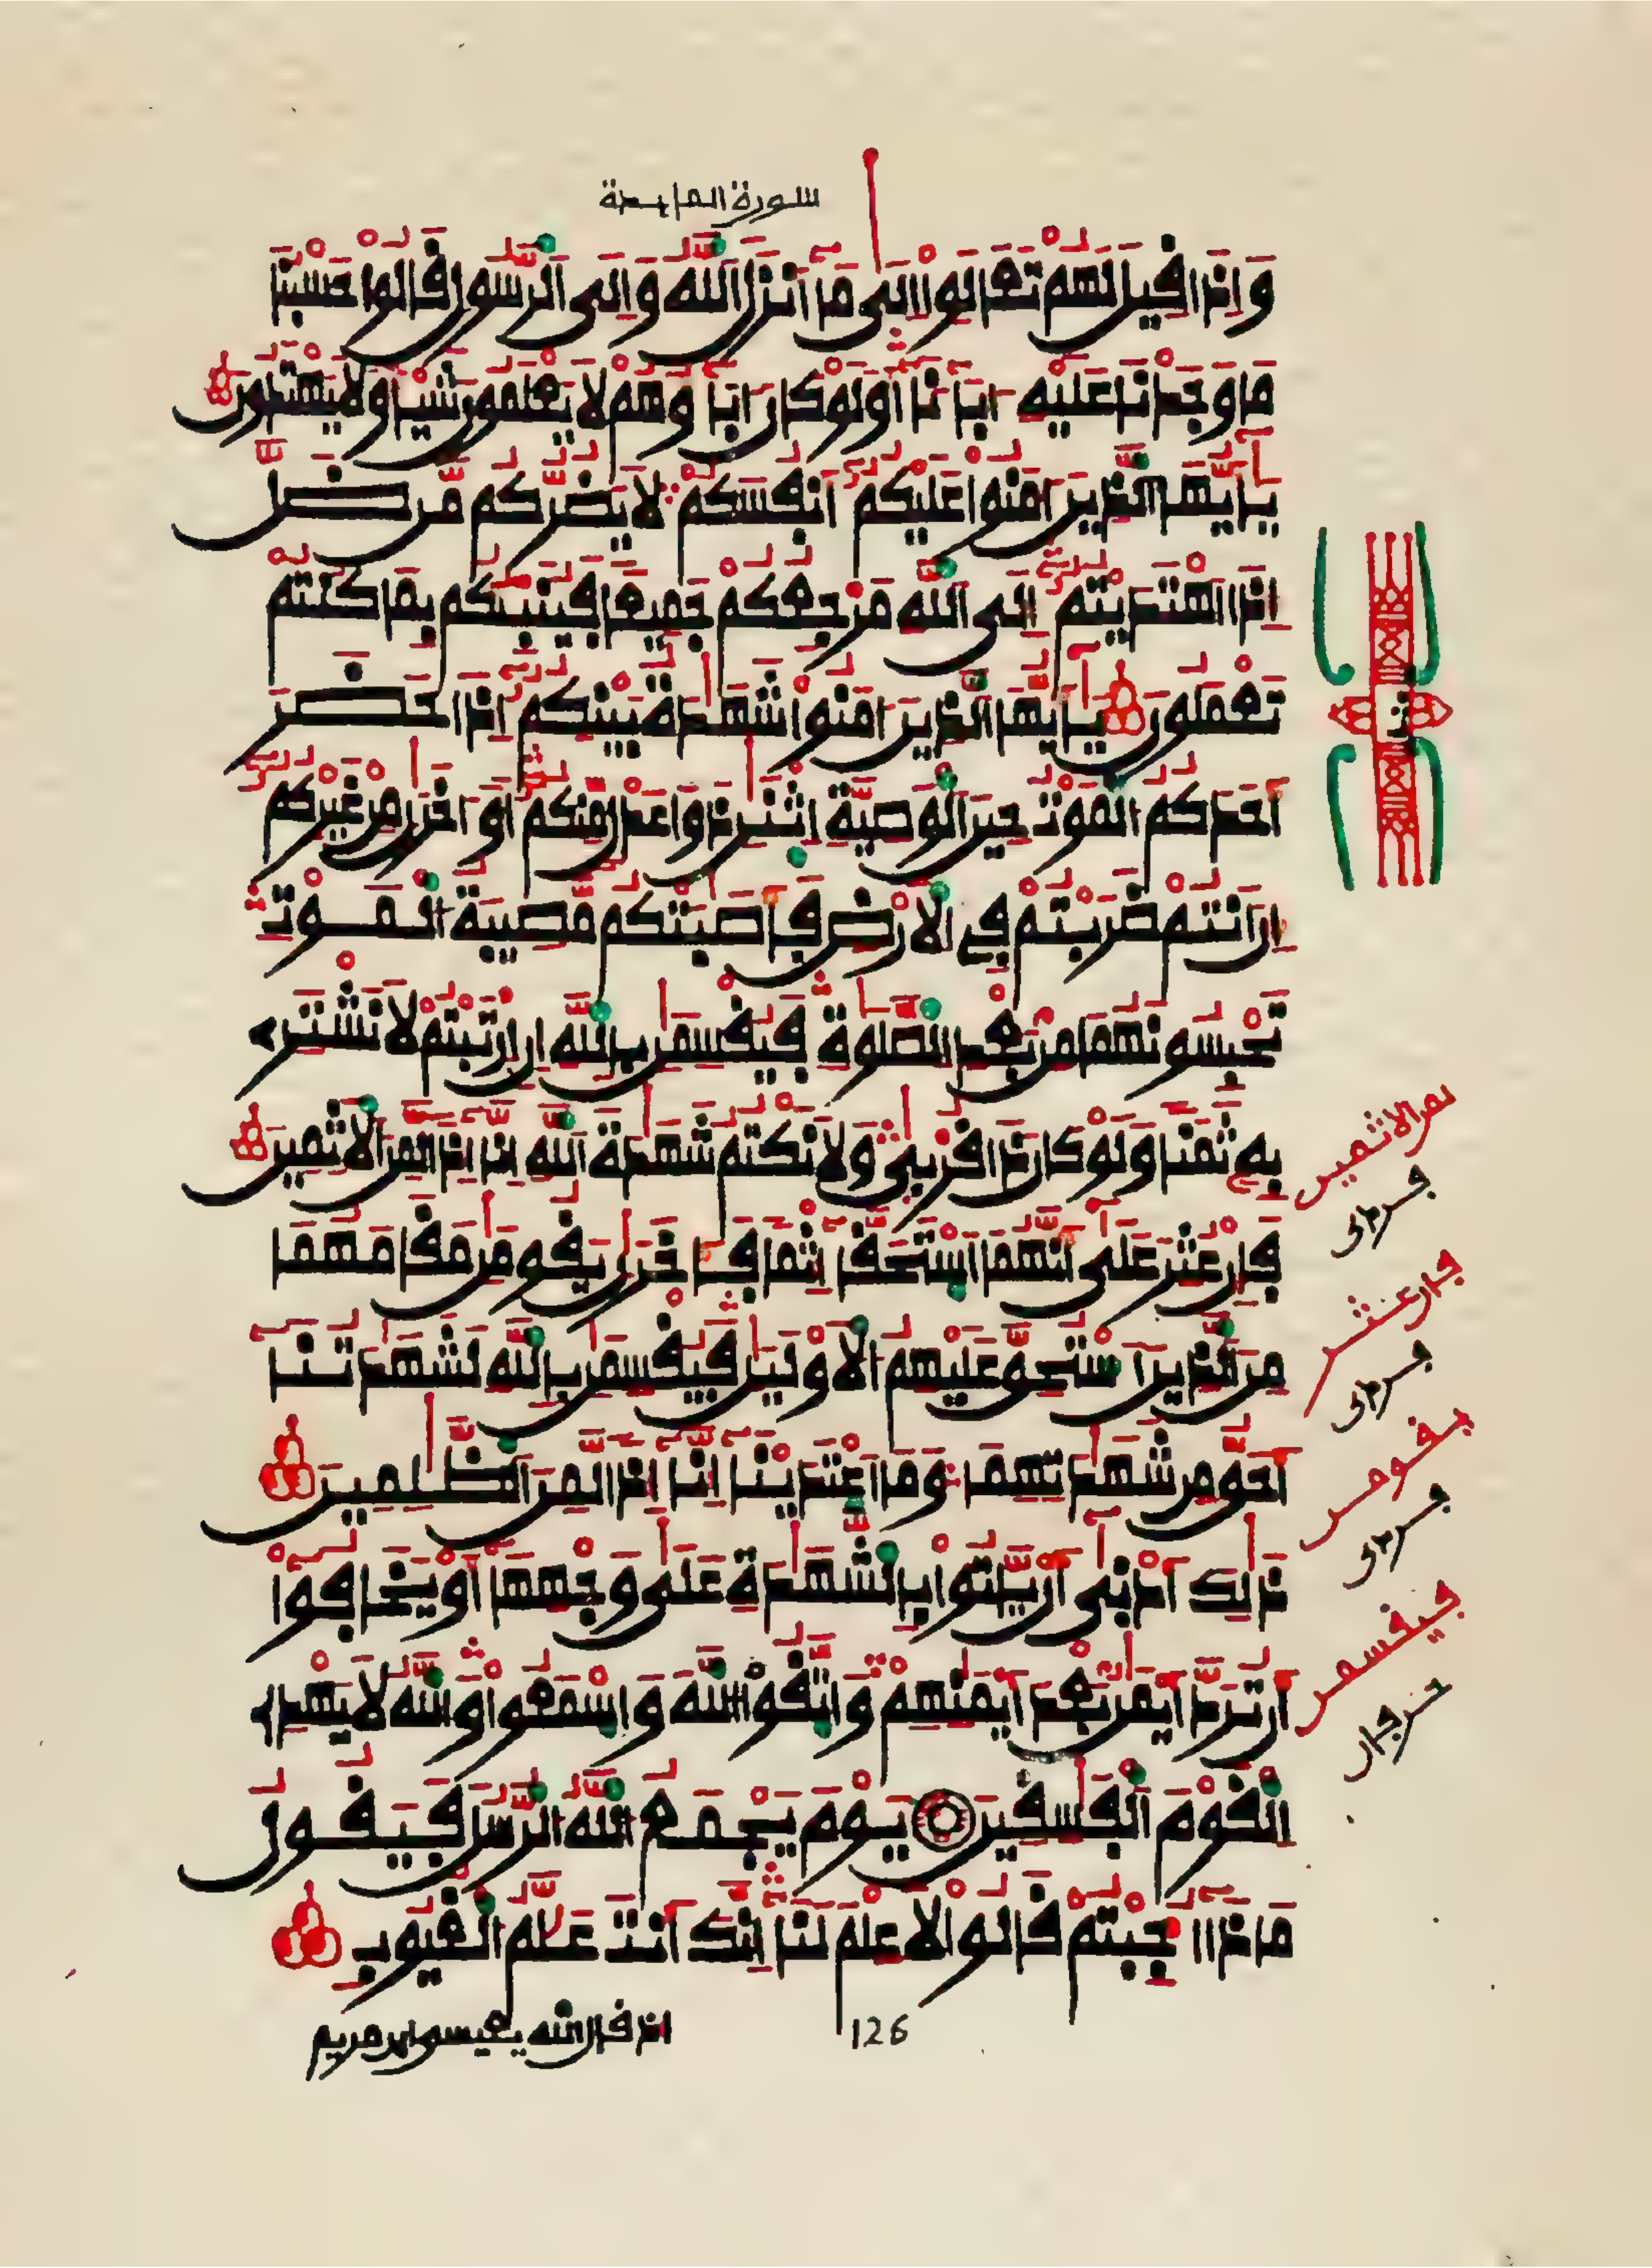 سورة المايدة
وَإِذَا قِيلَ لَهُمْ تَعَالَوِاْ اِلَىٰ مَا أَنزَلَ اَللَّهُ وَإِلَى اَلرَّسُولِ قَالُواْ حَسْبُنَا
مَا وَجَدْنَا عَلَيْهِ ءَابَآءَنَا أَوَلَوْ كَانَ ءَابَآؤُهُمْ لَا يَعْلَمُونَ شَيْـًٔا وَلَا يَهْتَدُونَ
يَٰٓأَيُّهَا اَلَّذِينَ ءَامَنُواْ عَلَيْكُمُۥٓ أَنفُسَكُمْ لَا يَضُرُّكُم مَّن ضَلَّ
إِذَا اَهْتَدَيْتُمُۥٓ إِلَى اَللَّهِ مَرْجِعُكُمْ جَمِيعًا فَيُنَبِّئُكُم بِمَا كُنتُمْ
تَعْمَلُونَ يَٰٓأَيُّهَا اَلَّذِينَ ءَامَنُواْ شَهَٰدَةُ بَيْنِكُمُۥٓ إِذَا حَضَرَ
أَحَدَكُمُ اَلْمَوْتُ حِينَ اَلْوَصِيَّةِ اِثْنَٰنِ ذَوَا عَدْلٍ مِّنكُمُۥٓ أَوَ اٰخَرَٰنِ مِنْ غَيْرِكُمُۥٓ
إِنَ اَنتُمْ ضَرَبْتُمْ فِي اِلَارْضِ فَأَصَٰبَتْكُم مُّصِيبَةُ اُلْمَوْتِ
تَحْبِسُونَهُمَا مِنۢ بَعْدِ اِلصَّلَوٰةِ فَيُقْسِمَٰنِ بِاللَّهِ إِنِ اِرْتَبْتُمْ لَا نَشْتَرِي
بِهِۦ ثَمَنًا وَلَوْ كَانَ ذَا قُرْبَىٰ وَلَا نَكْتُمُ شَهَٰدَةَ اَللَّهِ إِنَّآ إِذًا لَّمِنَ اَلَاثِمِينَ
فَإِنْ عُثِرَ عَلَىٰٓ أَنَّهُمَا اَسْتَحَقَّآ إِثْمًا فَـَٔاخَرَٰنِ يَقُومَٰنِ مَقَامَهُمَا
مِنَ اَلَّذِينَ اَسْتُحِقَّ عَلَيْهِمُ اُلَاوْلَيَٰنِ فَيُقْسِمَٰنِ بِاللَّهِ لَشَهَٰدَتُنَآ
أَحَقُّ مِن شَهَٰدَتِهِمَا وَمَا اَعْتَدَيْنَآ إِنَّآ إِذًا لَّمِنَ اَلظَّٰلِمِينَ
ذَٰلِكَ أَدْنَىٰٓ أَن يَّاتُواْ بِالشَّهَٰدَةِ عَلَىٰ وَجْهِهَآ أَوْ يَخَافُوٓاْ
أَن تُرَدَّ أَيْمَٰنٌۢ بَعْدَ أَيْمَٰنِهِمْ وَاتَّقُواْ اُللَّهَ وَاسْمَعُواْ وَاللَّهُ لَا يَهْدِي
اِلْقَوْمَ اَلْفَٰسِقِينَ يَوْمَ يَجْمَعُ اُللَّهُ اُلرُّسُلَ فَيَقُولُ
مَاذَآ أُجِبْتُمْ قَالُواْ لَا عِلْمَ لَنَآ إِنَّكَ أَنتَ عَلَّٰمُ اُلْغُيُوبِ
126
اذ قال الله يعيسى ابن مريم
لمن الاثمين
فان عثر
يقومن
فيقسمن